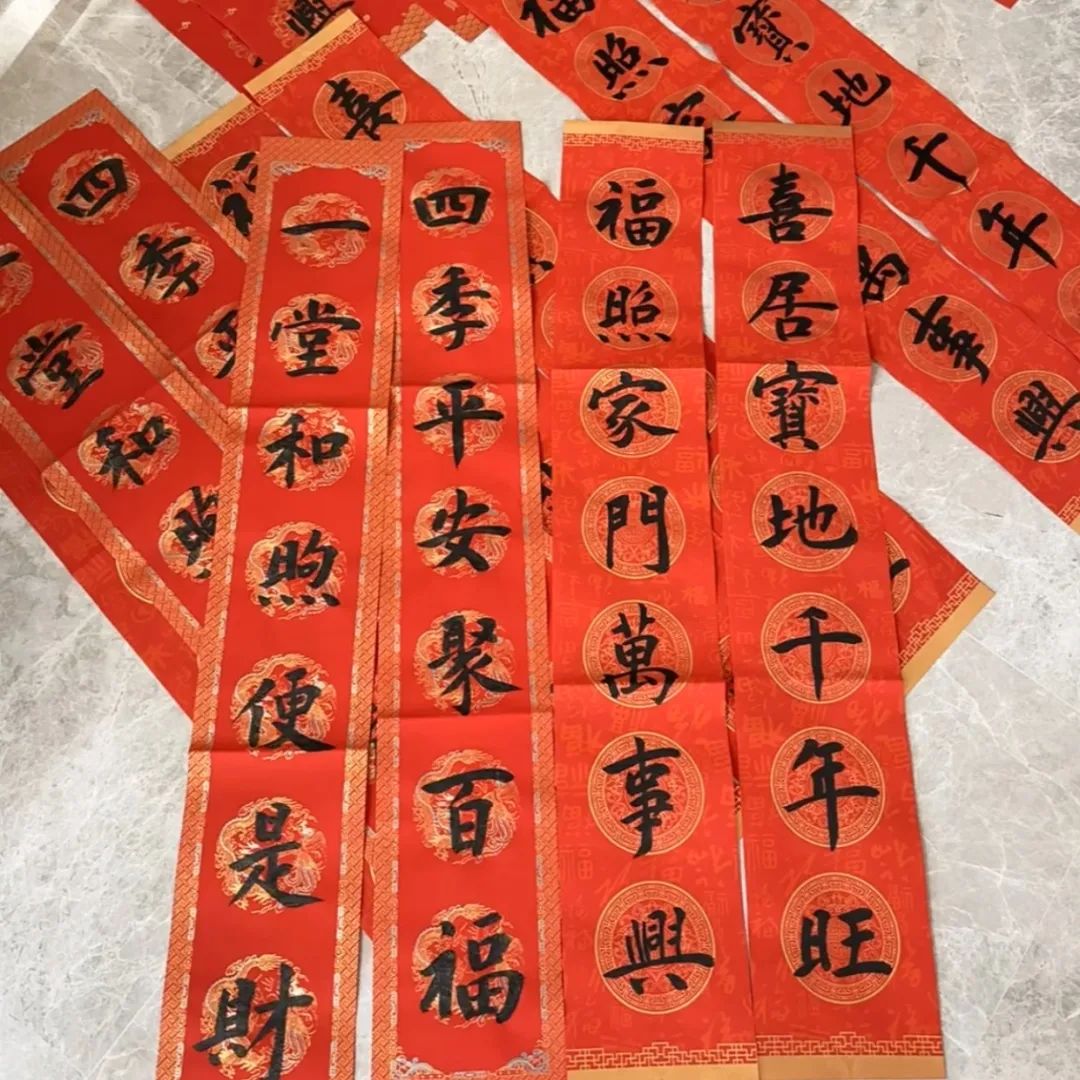 喜居寶地千年旺
福照家門萬事興
四季平安聚百福
一堂和煦便是財
寶地千年
福照家
萬事興
興
喜
福
四季平
一堂和煦